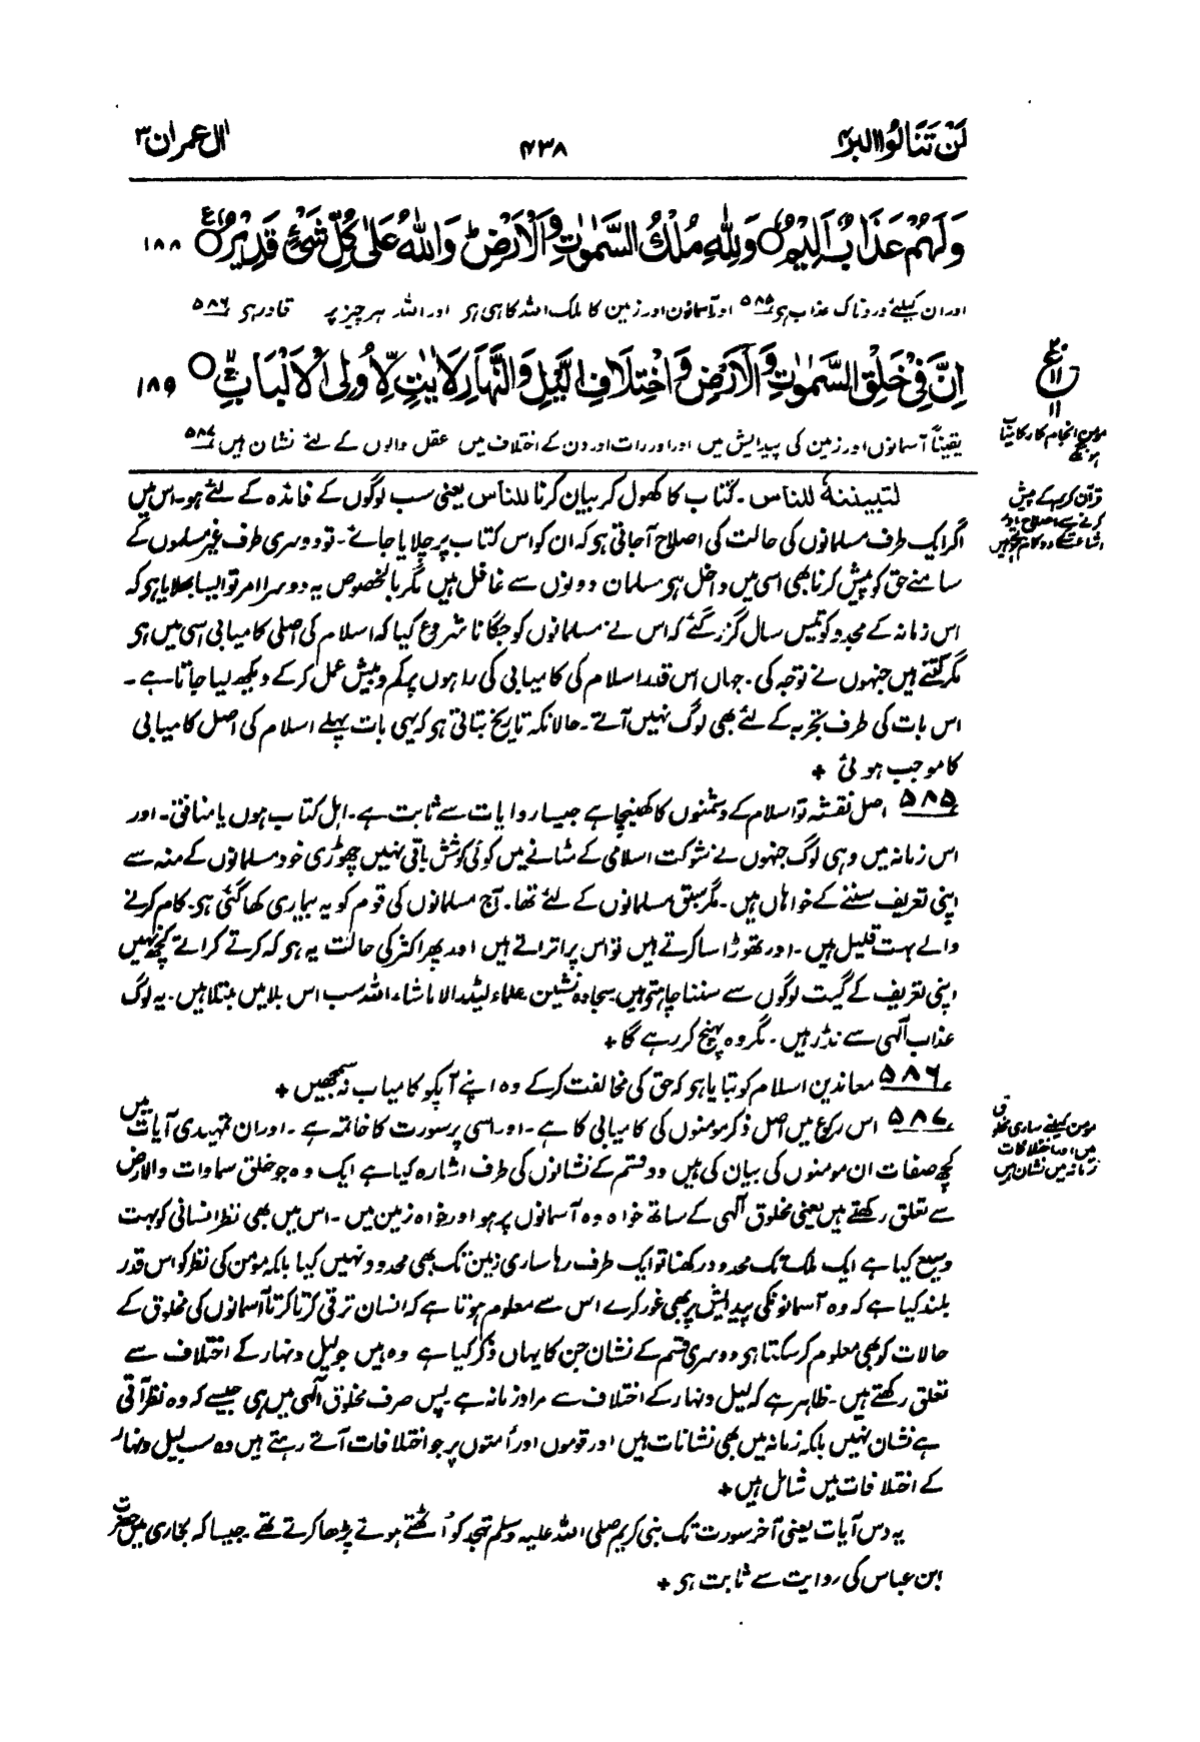 لَنْ تَنَالُوا الْبِرَّ ۴
۴۳۸
اٰل عمران ۳
وَلَهُمْ عَذَابٌ اَلِیْمٌ ○ وَلِلّٰهِ مُلْكُ السَّمٰوٰتِ وَالْاَرْضِ ؕ وَاللّٰهُ عَلٰی كُلِّ شَیْءٍ قَدِیْرٌ ○ ۱۸۸
اور ان کیلئے دردناک عذاب ہو ۵۸۵ اور آسمانوں اور زمین کا ملک اللہ کا ہی ہو اور اللہ ہر چیز پر قادر ہو ۵۸۶
اِنَّ فِیْ خَلْقِ السَّمٰوٰتِ وَالْاَرْضِ وَاخْتِلَافِ الَّیْلِ وَالنَّهَارِ لَاٰیٰتٍ لِّاُولِی الْاَلْبَابِ ○ ۱۸۹
یقیناً آسمانوں اور زمین کی پیدایش میں اور اور رات اور دن کے اختلاف میں عقل والوں کے لئے نشان ہیں ۵۸۷
۱۱
مومن انجام کار کامیاب
ہونگے
لتبیننہ للناس۔ کتاب کا کھول کر بیان کرنا للناس یعنی سب لوگوں کے فائدہ کے لئے ہو۔ اس میں
اگر ایک طرف مسلمانوں کی حالت کی اصلاح آجاتی ہو کہ ان کو اس کتاب پر چلایا جائے۔ تو دوسری طرف غیر مسلموں کے
سامنے حق کو پیش کرنا بھی اسی میں داخل ہو مسلمان دونوں سے غافل ہیں مگر بالخصوص یہ دوسرا امر تو ایسا بھلایا ہو کہ
اس زمانہ کے مجدد کو تیس سال گزر گئے کہ اس نے مسلمانوں کو جگانا شروع کیا کہ اسلام کی اصلی کامیابی اسی میں ہو
مگر کتنے ہیں جنہوں نے توجہ کی۔ جہاں اس قدر اسلام کی کامیابی کی راہوں پر کم و بیش عمل کرکے دیکھ لیا جاتا ہے۔
اس بات کی طرف تجربہ کے لئے بھی لوگ نہیں آتے۔ حالانکہ تاریخ بتاتی ہو کہ یہی بات پہلے اسلام کی اصل کامیابی
کا موجب ہوئی +
قرآن کریم کے پیش
کرنے سے اصلاح اور
اشاعت کے دو کام
۵۸۵ اصل نقشہ تو اسلام کے دشمنوں کا کھینچا ہے جیسا روایات سے ثابت ہے۔ اہل کتاب ہوں یا منافق۔ اور
اس زمانہ میں وہی لوگ جنہوں نے شوکت اسلامی کے مٹانے میں کوئی کوشش باقی نہیں چھوڑی خود مسلمانوں کے منہ سے
اپنی تعریف سننے کے خواہاں ہیں۔ مگر سبق مسلمانوں کے لئے تھا۔ آج مسلمانوں کی قوم کو یہ بیماری کھا گئی ہو۔ کام کرنے
والے بہت قلیل ہیں۔ اور تھوڑا سا کرتے ہیں تو اس پر اتراتے ہیں اور پھر اکثر کی حالت یہ ہو کہ کرتے کراتے کچھ نہیں
اپنی تعریف کے گیت لوگوں سے سننا چاہتے ہیں سجادہ نشین علماء لیڈر الا ماشاء اللہ سب اس بلا میں مبتلا ہیں۔ یہ لوگ
عذاب الٰہی سے نڈر ہیں۔ مگر وہ پہنچ کر رہے گا +
۵۸۶ معاندین اسلام کو بتایا ہو کہ حق کی مخالفت کرکے وہ اپنے آپکو کامیاب نہ سمجھیں +
۵۸۷ اس رکوع میں اصل ذکر مومنوں کی کامیابی کا ہے۔ اور اسی پر سورت کا خاتمہ ہے۔ اور ان تمہیدی آیات میں
کچھ صفات ان مومنوں کی بیان کی ہیں دو قسم کے نشانوں کی طرف اشارہ کیا ہے ایک وہ جو خلق سماوات والارض
سے تعلق رکھتے ہیں یعنی مخلوق الٰہی کے ساتھ خواہ وہ آسمانوں پر ہو اور خواہ زمین میں۔ اس میں بھی نظر انسانی کو بہت
وسیع کیا ہے ایک ملک تک محدود رکھنا تو ایک طرف رہا ساری زمین تک بھی محدود نہیں کیا بلکہ مومن کی نظر کو اس قدر
بلند کیا ہے کہ وہ آسمانوں کی پیدایش پر بھی غور کرے اس سے معلوم ہوتا ہے کہ انسان ترقی کرتا کرتا آسمانوں کی مخلوق کے
حالات کو بھی معلوم کر سکتا ہو دوسری قسم کے نشان جن کا یہاں ذکر کیا ہے وہ ہیں جو لیل و نہار کے اختلاف سے
تعلق رکھتے ہیں۔ ظاہر ہے کہ لیل و نہار کے اختلاف سے مراد زمانہ ہے پس صرف مخلوق الٰہی میں ہی جیسے کہ وہ نظر آتی
ہے نشان نہیں بلکہ زمانہ میں بھی نشانات ہیں اور قوموں اور اُمتوں پر جو اختلافات آتے رہتے ہیں وہ سب لیل و نہار
کے اختلافات میں شامل ہیں +
مومن کیلئے ساری مخلوق
میں اور اختلافات
زمانہ میں نشان ہیں
یہ دس آیات یعنی آخر سورت تک نبی کریم صلی اللہ علیہ وسلم تہجد کو اُٹھتے ہوئے پڑھا کرتے تھے جیسا کہ بخاری میں حضرت
ابن عباس کی روایت سے ثابت ہو +